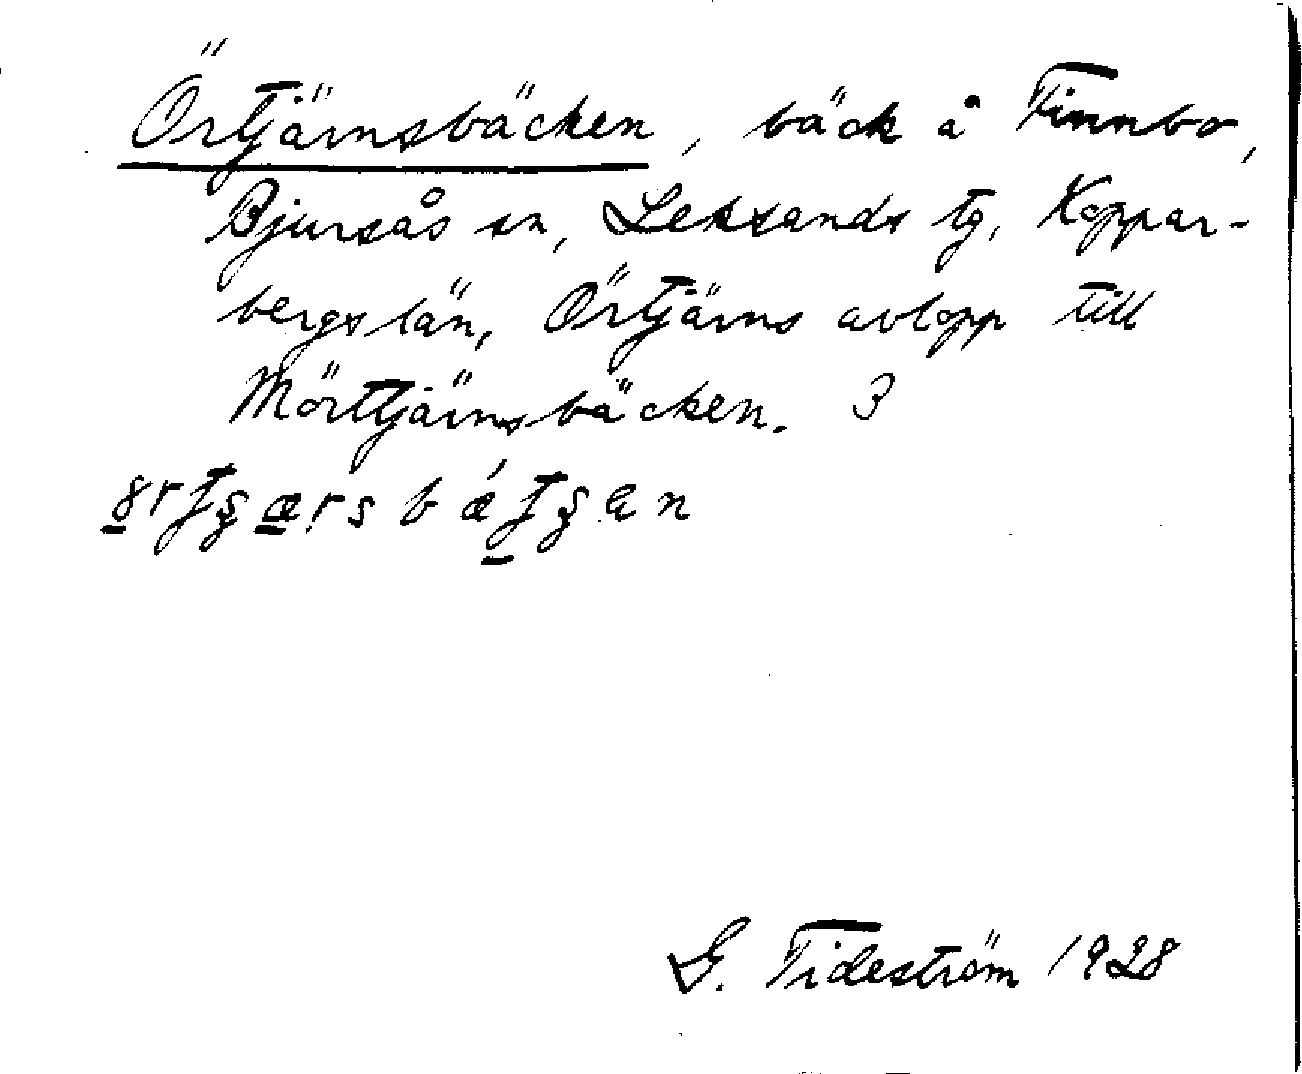 Örtjärnsbäcken, bäck å Finnbo,
Bjursås sn, Leksands tg, Koppar-
bergs län, Örtjärns avlopp till
Mörttjärnsbäcken. 3
G. Tideström 1928